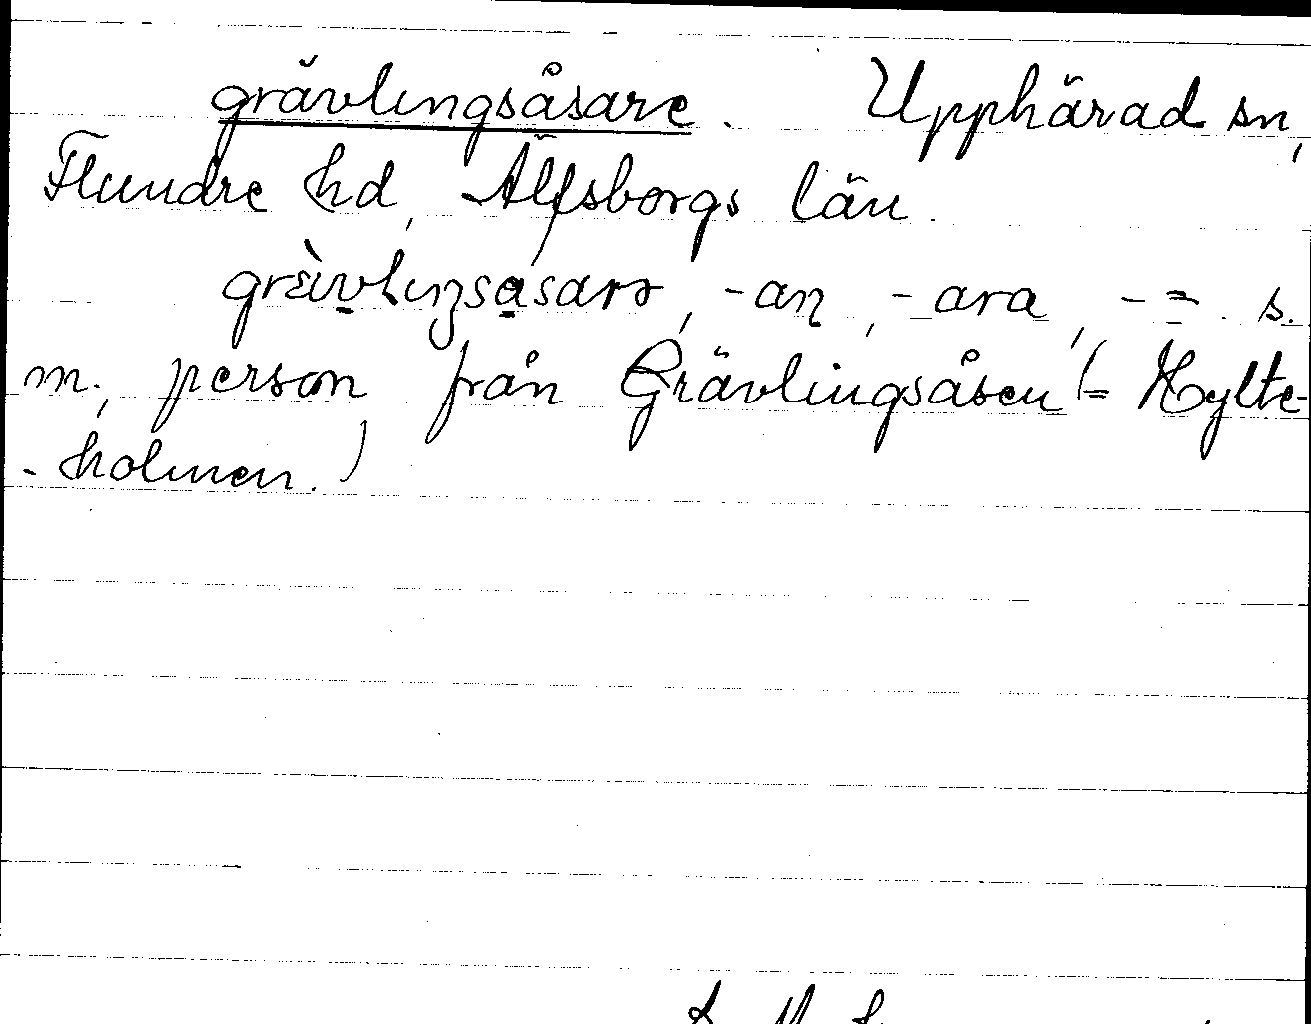 grävlingsåsare. Upphärad sn,
Flundre hd, Älfsborgs län.
grävlingsåsarə, -aɳ, -ara, -=. s.
m., person från Grävlingsåsen (= Hylte-
-holmen.)